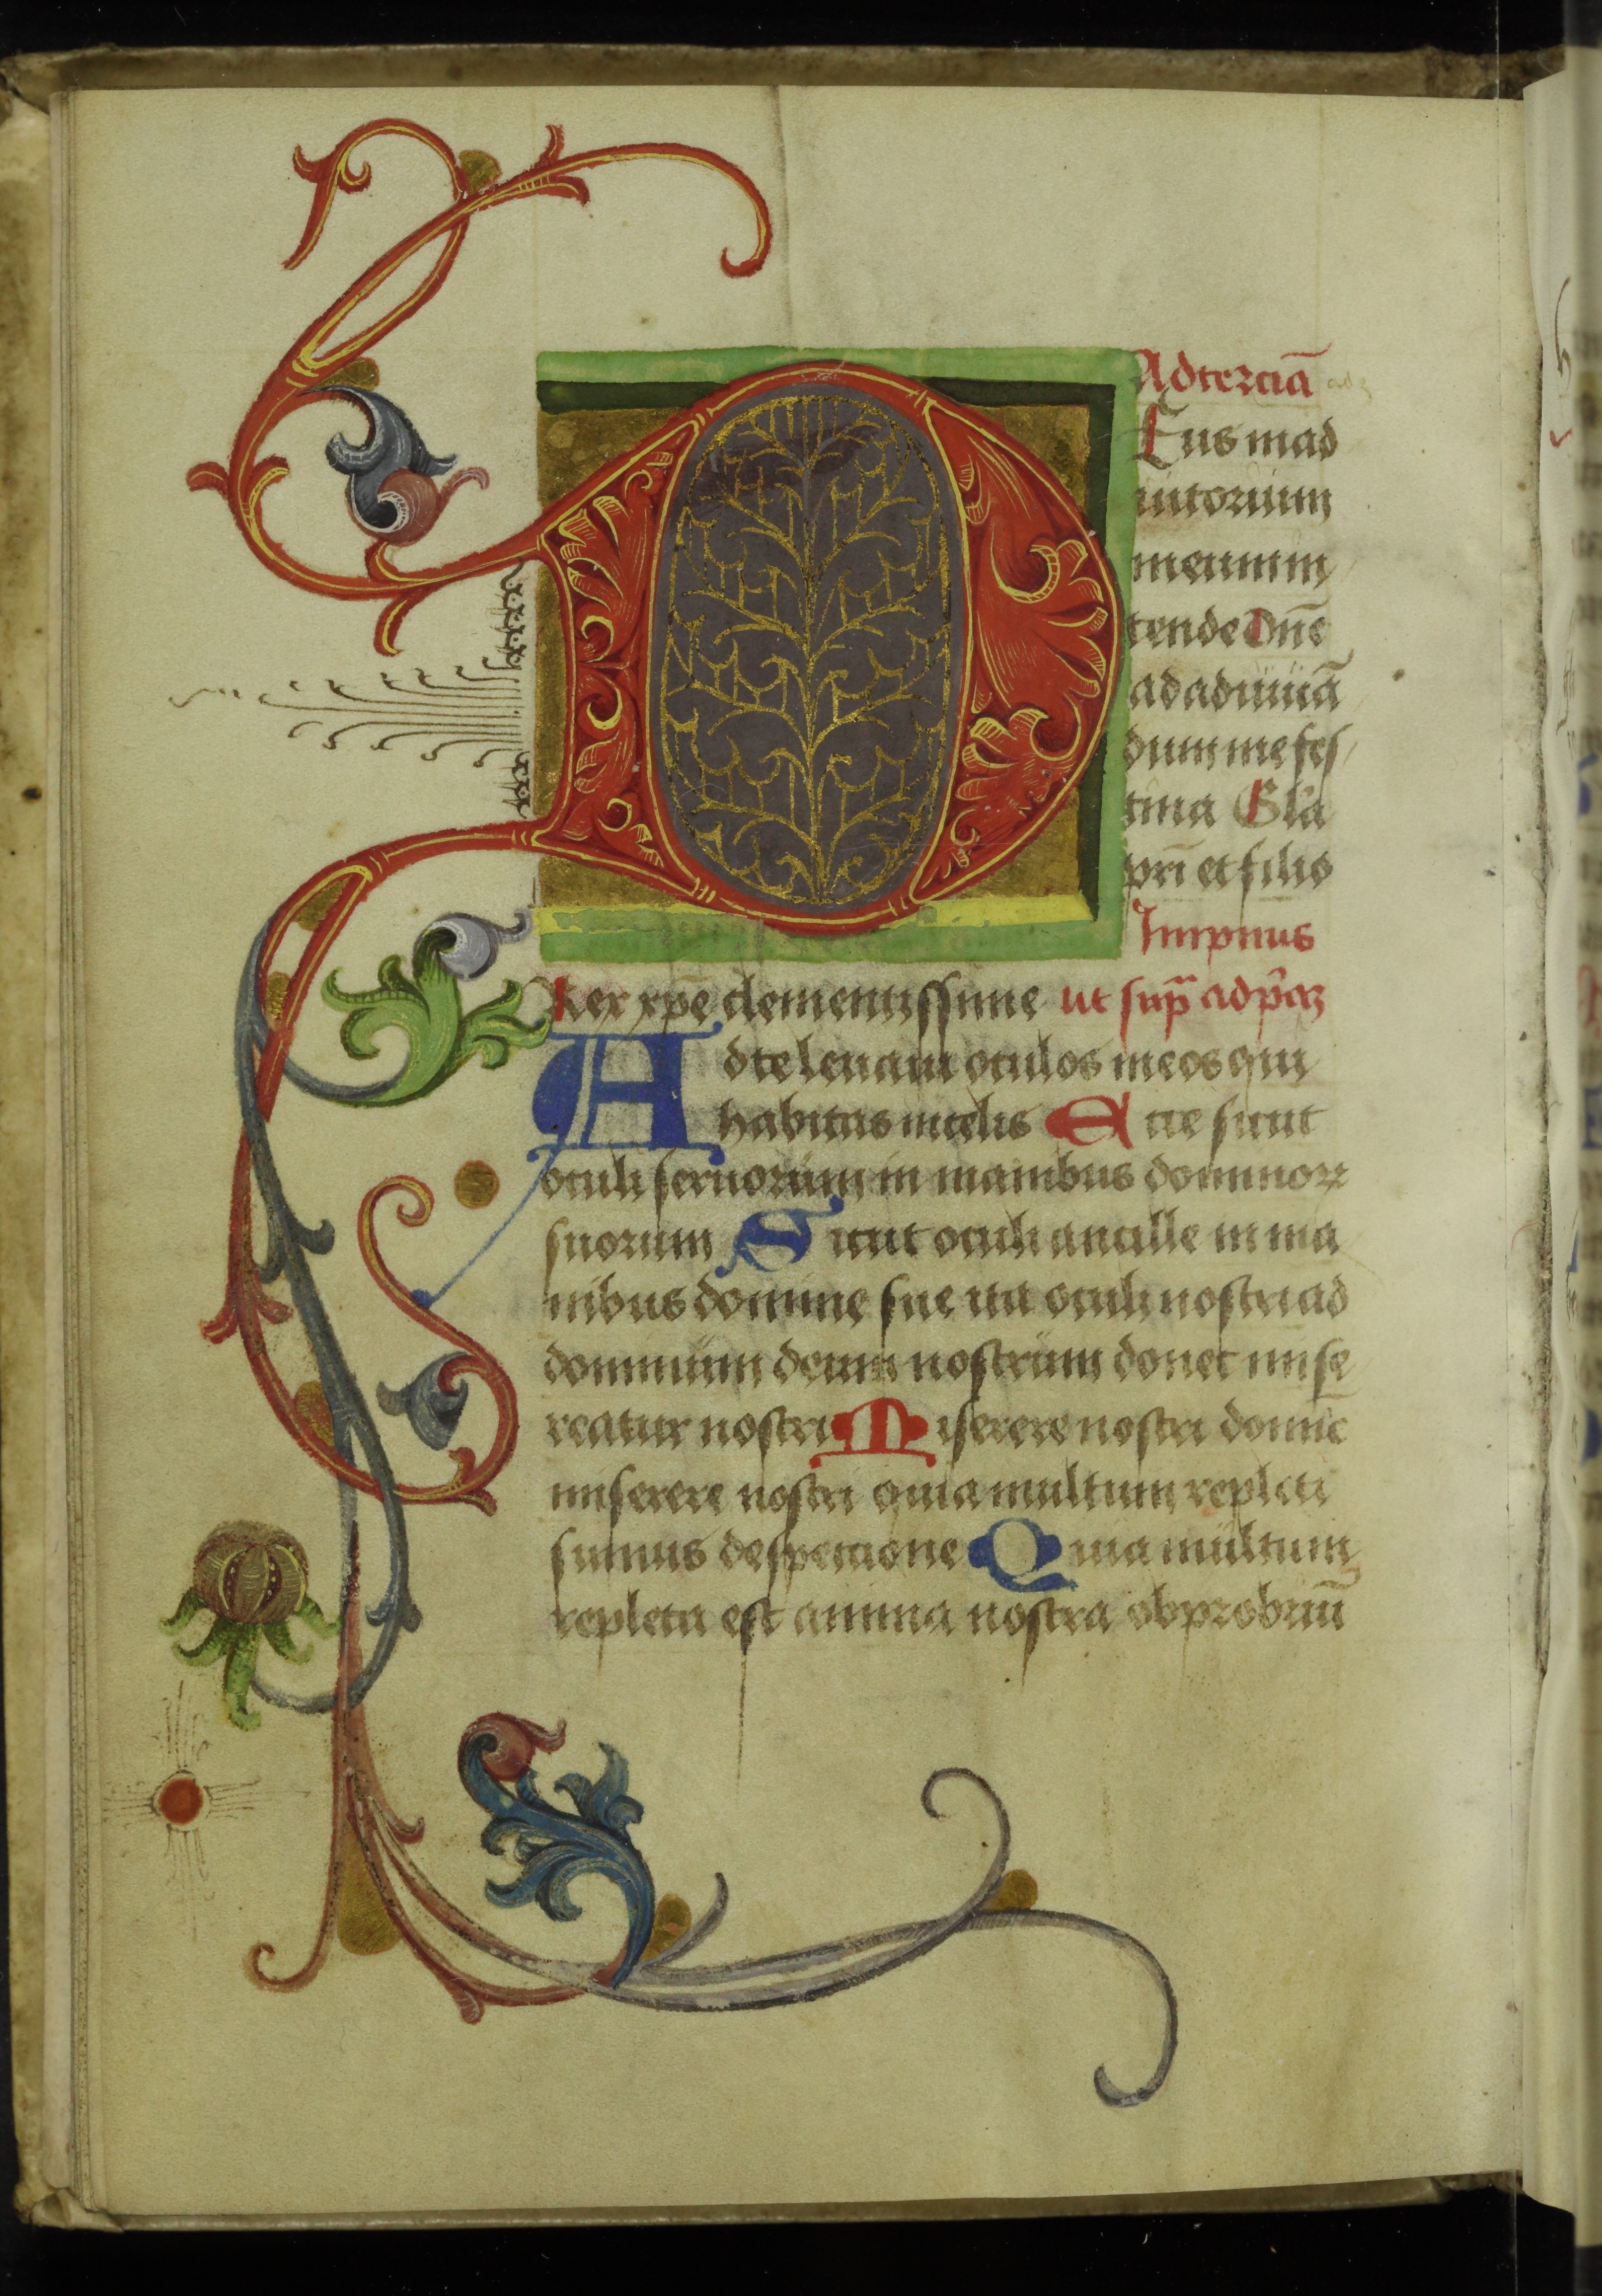 Ad terciā
Eus in ad
iutorium
meum in
tende Dn̄e
ad adiuuā
dum me fes
tina Gl'a
pri̅ et filio
Impnus
Rex xp̄e clementissime ut sup̄ ad p̄az
Ad te leuaui oculos meos qui
habitas in celis Ecce sicut
oculi seruorum in manibus dominoꝝ
suorum Sicut oculi ancille in ma
nibus domine sue ita oculi nostri ad
dominum deum nostrum donec mise
reatur nostri Miserere nostri domīe
miserere nostri quia multum repleti
sumus despectione Quia multum
repleta est anima nostra obprobriū